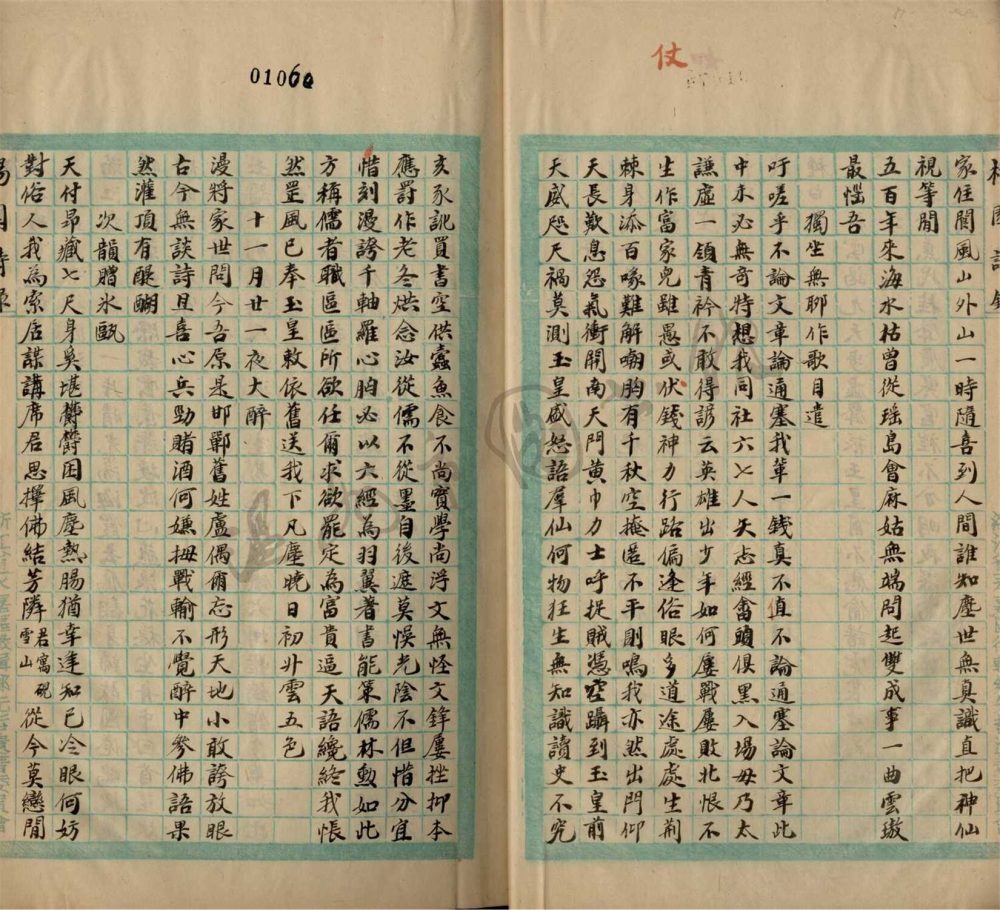 仗
家住閬風山外山一時隨喜到人間誰知塵世無真識直把神仙
視等閒
五百年來海水枯曾從瑶島會麻姑無端問起雙成事一曲雲璈
最惺吾
獨坐無聊作歌自遣
吁嗟乎不論文章論通塞我輩一錢真不值不論通塞論文章此
中亦必無奇特想我同社六七人矢志經畬頭俱黑入場毋乃太
謙虛一領青衿不敢得謬云英雄出少年如何屢戰屢敗北恨不
生作富家兒雖愚或伏錢神力行路偏逢俗眼多道途處處生荊
棘身添百喙難解嘲胸有千秋空掩匿不平則鳴我亦然出門仰
天長歎息怨氣衝開南天門黄巾力士呼捉賊憑空躡到玉皇前
天威咫天禍莫測玉皇盛怒語羣仙何物狂生無知識讀史不究
01060
亥豕訛買書空供蠹魚食不尚實學尚浮文無怪文鋒屢挫抑本
應罰作老冬烘念汝從儒不從墨自後遮莫悞光陰不但惜分宜
惜刻漫誇千軸羅心胸必以六經為羽翼著書能策儒林勳如此
方稱儒者職區區所欲任爾求欲罷定為富貴逼天語纔終我悵
然罡風已奉玉皇敕依舊送我下凡塵曉日初升雲五色
十一月廿一夜大醉
漫將家世問今吾原是邯鄲舊姓盧偶爾忘形天地小敢誇放眼
古今無談詩且喜心兵勁賭酒何嫌拇戰輸不覺醉中參佛語果
然灌頂有醍醐
次韻贈氷甌
天付昂藏七尺身奚堪欝欝困風塵熱腸猶幸逢知己冷眼何妨
對俗人我為索居謀講席君思擇佛結芳隣君寓硯雪山從今莫戀閒